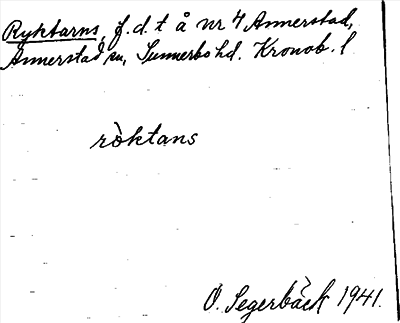 Ryktarns, f.d. t å nr 4 Annerstad,
Annerstad sn, Sunnerbo hd. Kronob. l
röktans
O. Segerbäck 1941.